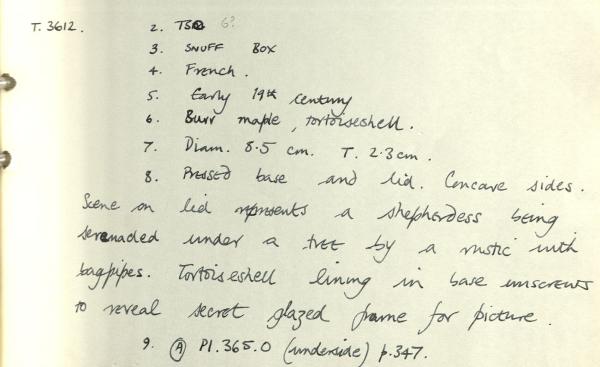 T. 3612. 2. TSO 6?
3. SNUFF BOX
4. French.
5. Early 19th century
6. Burr maple, tortoiseshell.
7. Diam. 8.5 cm. T. 2.3cm.
8. Pressed base and lid. Concave sides.
Scene on lid represents a shepherdess being
serenaded under a tree by a rustic with
bagpipes. Tortoiseshell lining in base unscrews
to reveal secret glazed frame for picture.
9. (A) Pl.365.O (underside) p.347.